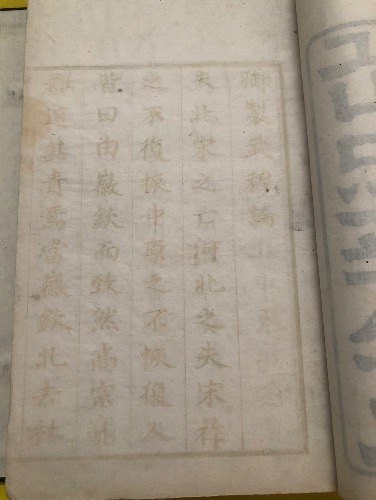 御製武穆論
夫北宋之亡河北之失宋祚
之不復振中原之不恢復人
皆曰由徽欽而致然高宗
難逭其責焉當徽欽北去社